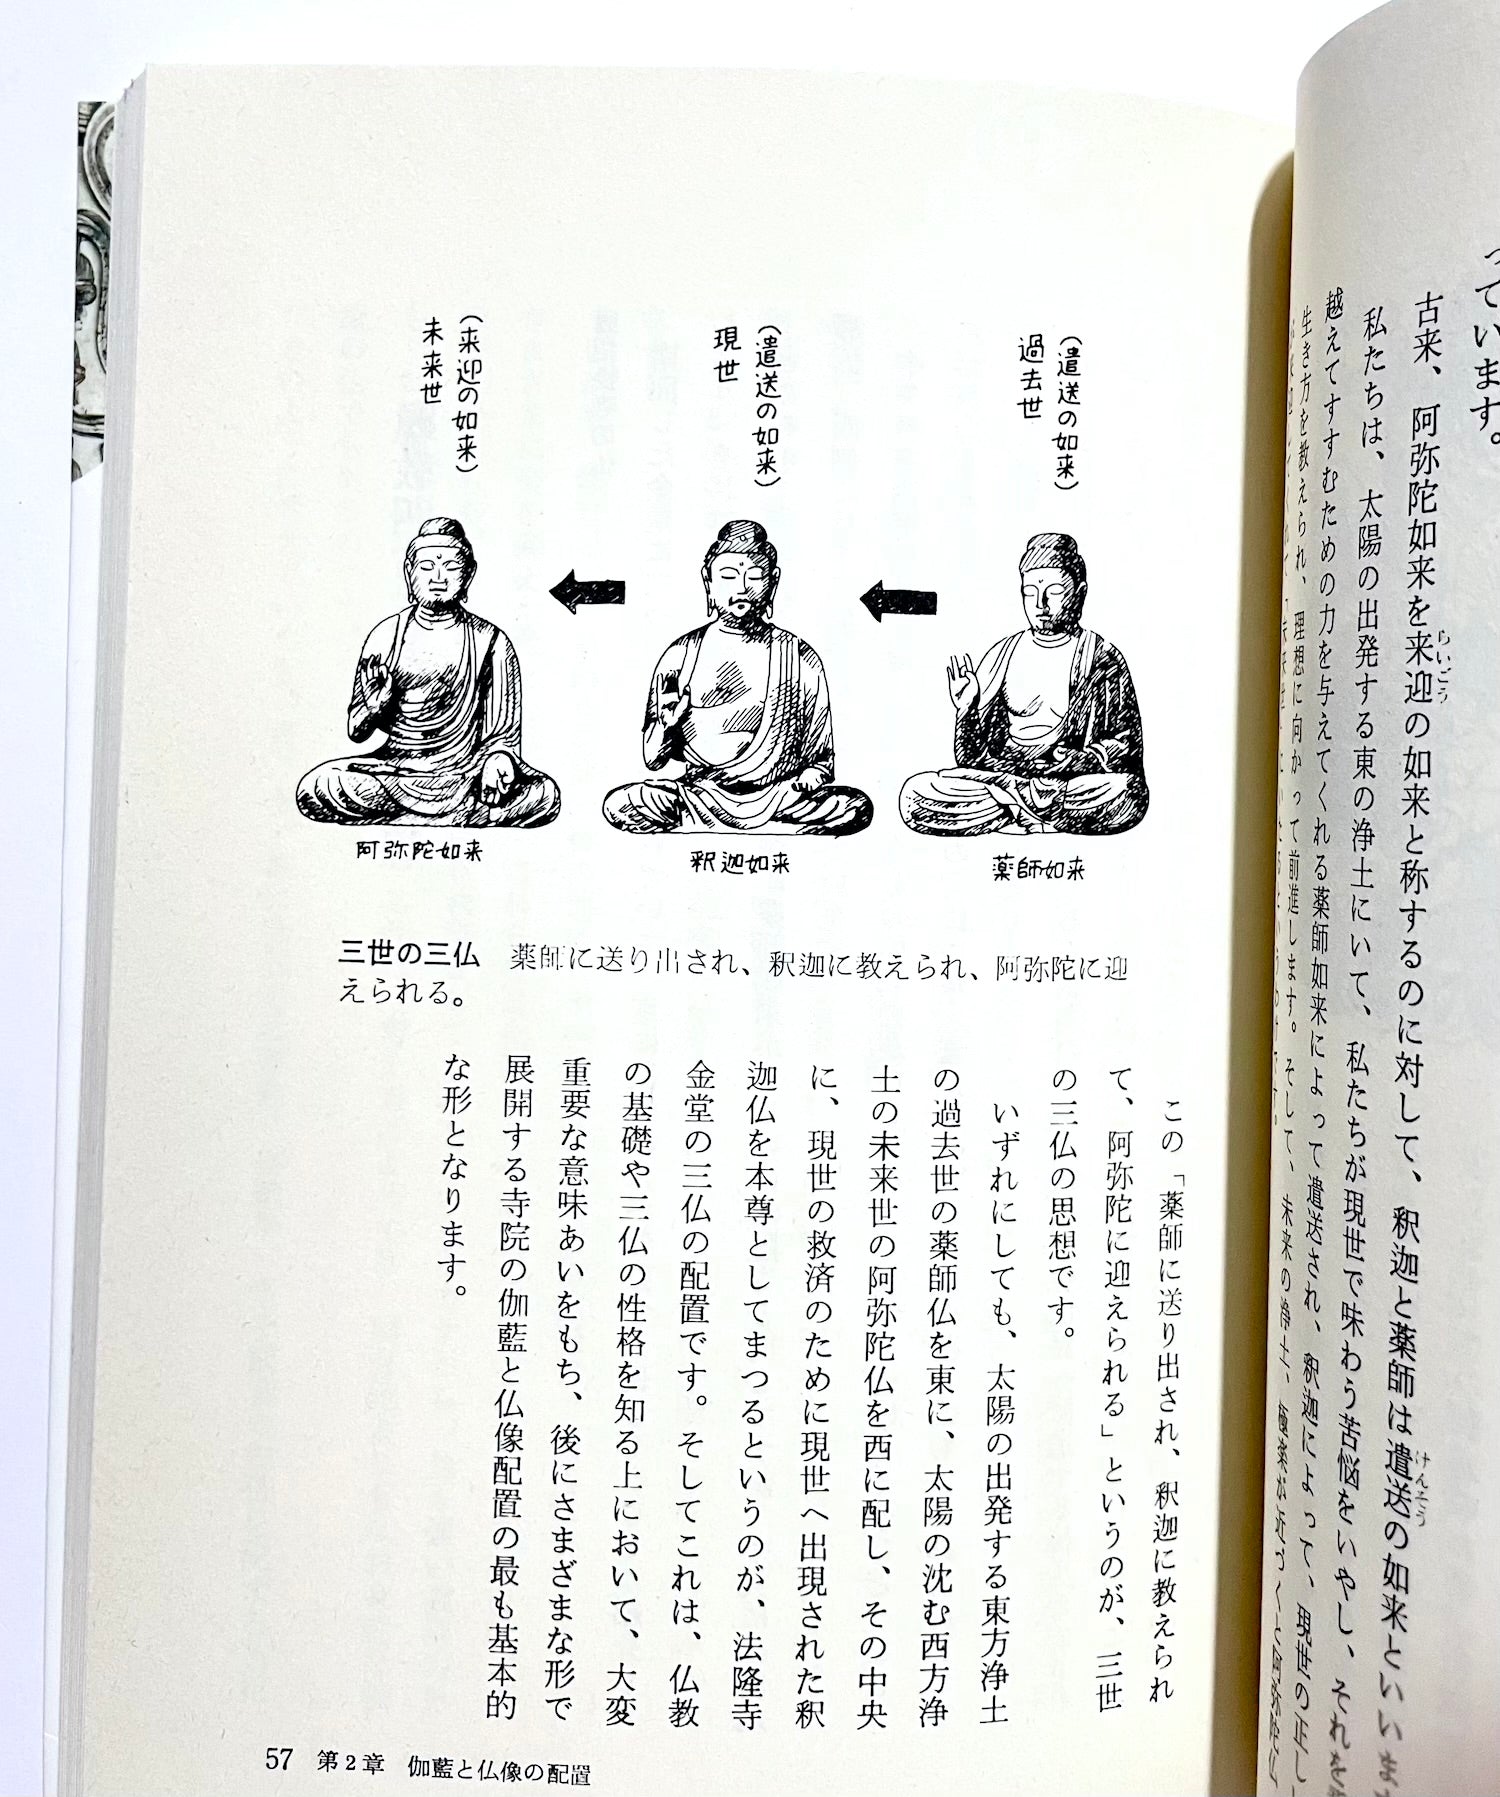 っています。
古来、阿弥陀如来を来迎の如来と称するのに対して、釈迦と薬師は遣送の如来といいま
らいごう
けんそう
私たちは、太陽の出発する東の浄土にいて、私たちが現世で味わう苦悩をいやし、それを
越えてすすむための力を与えてくれる薬師如来によって遣送され、釈迦によって、現世の正し
生き方を教えられ、理想に向かって前進します。そして、未来の浄土、極楽が近づくと阿弥陀仏
(遣送の如来)
過去世
(遣送の如来)
現世
(来迎の如来)
未来世
薬師如来
釈迦如来
阿弥陀如来
三世の三仏 薬師に送り出され、釈迦に教えられ、阿弥陀に迎
えられる。
この「薬師に送り出され、釈迦に教えられ
て、阿弥陀に迎えられる」というのが、三世
の三仏の思想です。
いずれにしても、太陽の出発する東方浄土
の過去世の薬師仏を東に、太陽の沈む西方浄
土の未来世の阿弥陀仏を西に配し、その中央
に、現世の救済のために現世へ出現された釈
迦仏を本尊としてまつるというのが、法隆寺
金堂の三仏の配置です。そしてこれは、仏教
の基礎や三仏の性格を知る上において、大変
重要な意味あいをもち、後にさまざまな形で
展開する寺院の伽藍と仏像配置の最も基本的
な形となります。
57 第2章 伽藍と仏像の配置